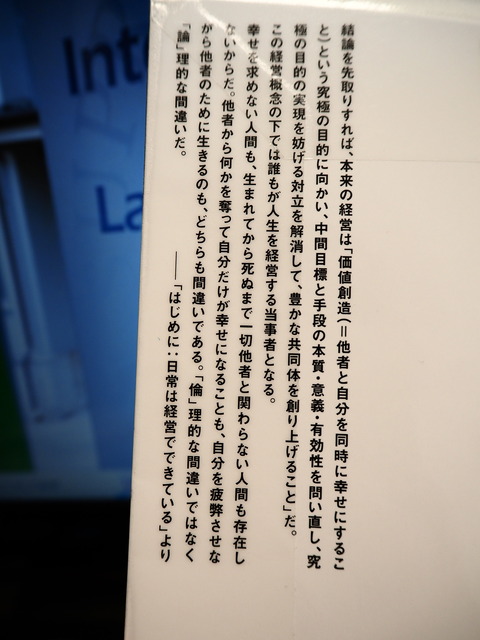 結論を先取りすれば、本来の経営は「価値創造（＝他者と自分を同時に幸せにするこ
と）という究極の目的に向かい、中間目標と手段の本質・意義・有効性を問い直し、究
極の目的の実現を妨げる対立を解消して、豊かな共同体を創り上げること」だ。
この経営概念の下では誰もが人生を経営する当事者となる。
幸せを求めない人間も、生まれてから死ぬまで一切他者と関わらない人間も存在し
ないからだ。他者から何かを奪って自分だけが幸せになることも、自分を疲弊させな
がら他者のために生きるのも、どちらも間違いである。「倫」理的な間違いではなく
「論」理的な間違いだ。
――「はじめに：日常は経営でできている」より
Inte
La